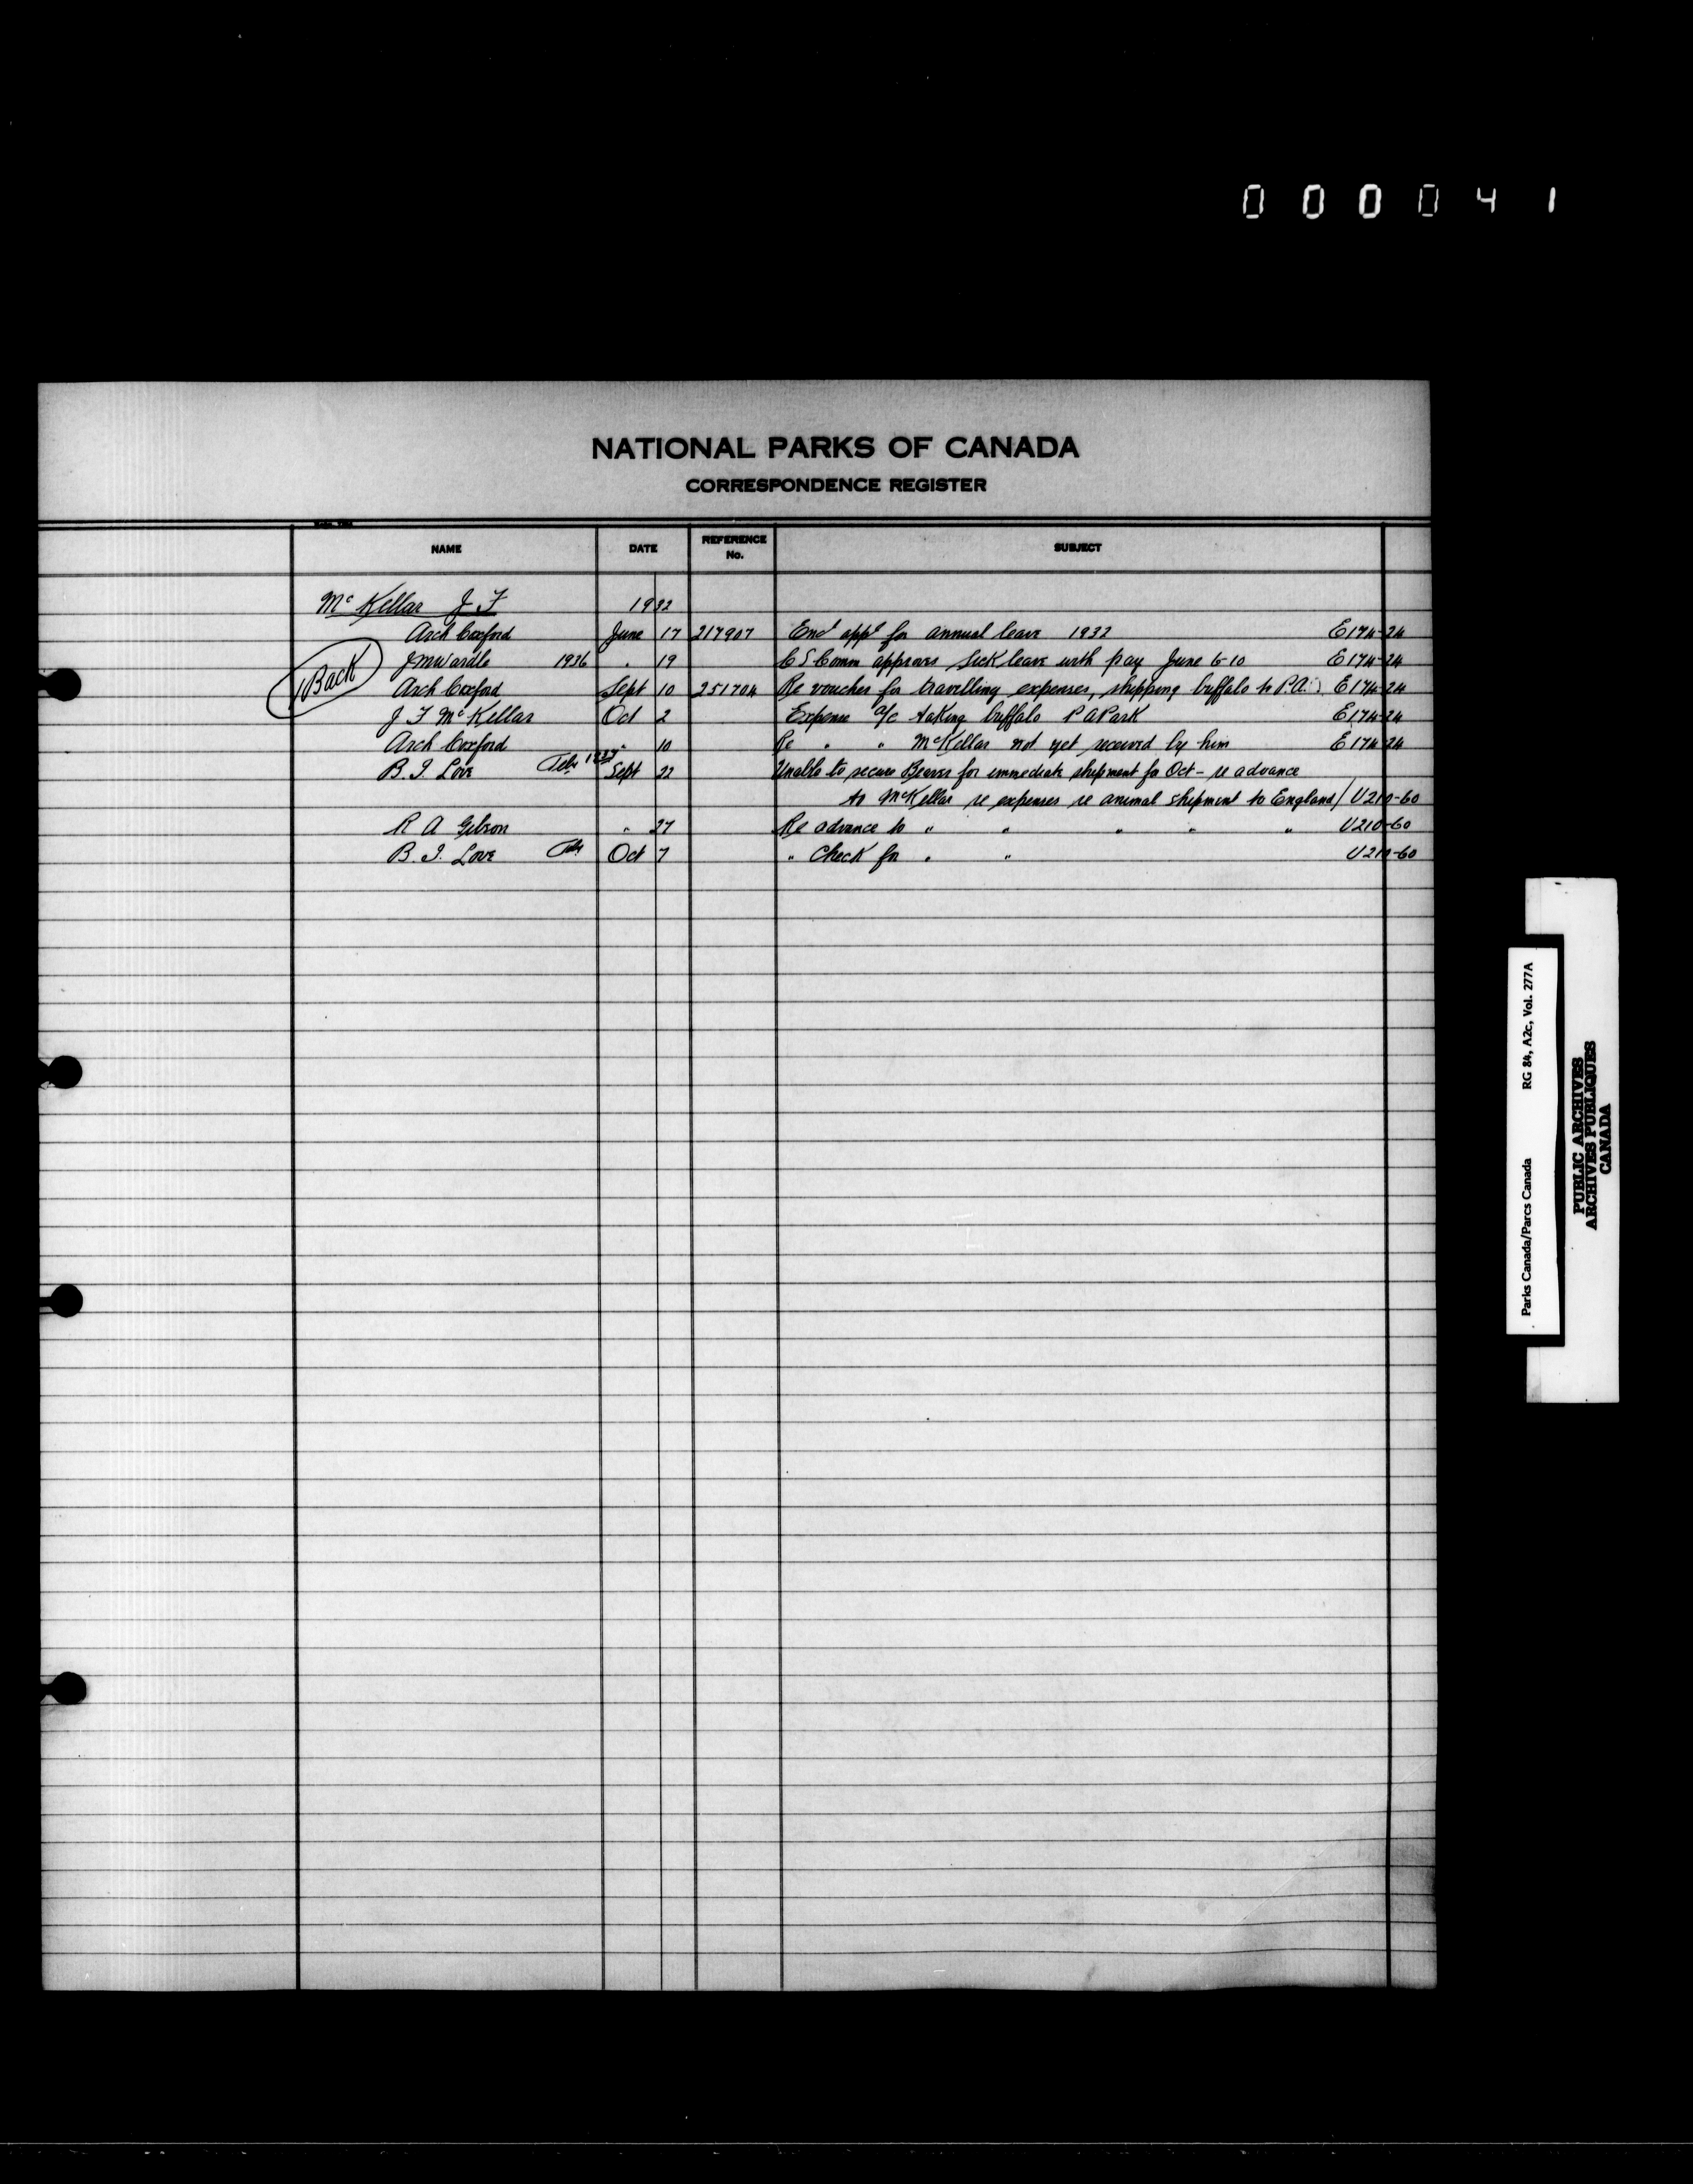 000041
NATIONAL PARKS OF CANADA
CORRESPONDENCE REGISTER
NAME DATE REFERENCE No. SUBJECT
McKellar J F 1932
Arch Coxford June 17 217907 Encl appl for annual leave 1932 E174-24
Back
J M Wardle 1936 " 19 C S Comm approves Sick leave with pay June 6-10 E174-24
Arch Coxford Sept 10 251704 Re voucher for travelling expenses, shipping buffalo to P.A. E174-24
J F McKellar Oct 2 Expense a/c taking buffalo P A Park E174-24
Arch Coxford " 10 Re " " McKellar not yet received by him E174-24
B. I. Love Sept 22 Unable to secure Beaver for immediate shipment for Oct - re advance
to McKellar re expenses re animal shipment to England / U210-60
R A Gibson " 27 Re advance to " " " " " U210-60
B. I. Love Oct 7 " Check for " " U210-60
Parks Canada/Parcs Canada RG 84, A2c, Vol. 277A
PUBLIC ARCHIVES
ARCHIVES PUBLIQUES
CANADA